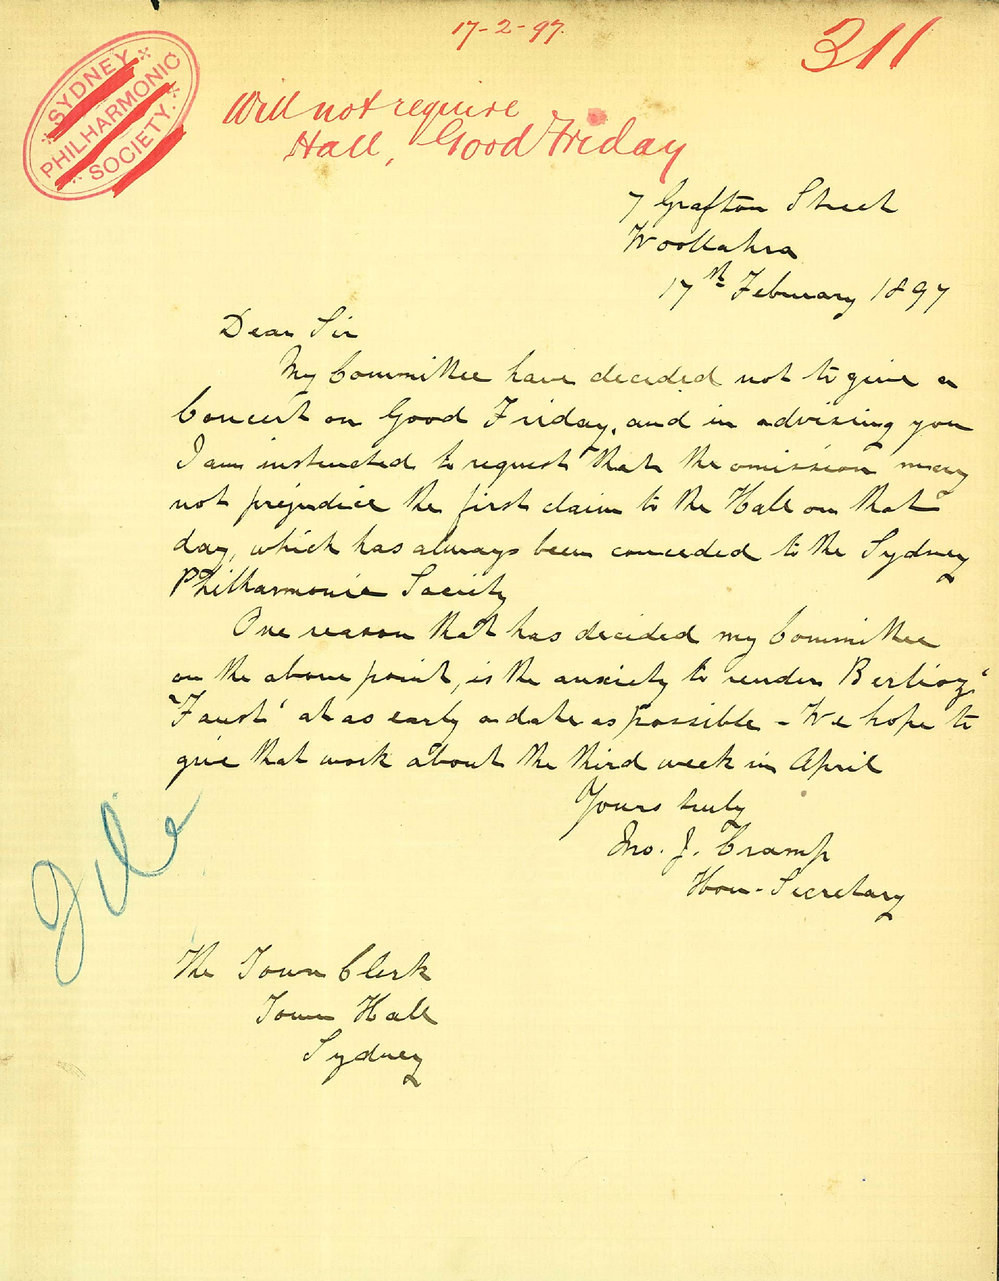 17-2-97.
311
SYDNEY
PHILHARMONIC
SOCIETY.
Will not require
Hall, Good Friday
7 Grafton Street
Woollahra
17th February 1897
Dear Sir
My Committee have decided not to give a
Concert on Good Friday, and in advising you
I am instructed to request that the omission may
not prejudice the first claim to the Hall on that
day, which has always been conceded to the Sydney
Philharmonic Society
One reason that has decided my Committee
on the above point, is the anxiety to render Berlioz'
'Faust' at as early a date as possible - We hope to
give that work about the third week in April
Yours truly
Jno. J. Cramp
Hon-Secretary
File
The Town Clerk
Town Hall
Sydney